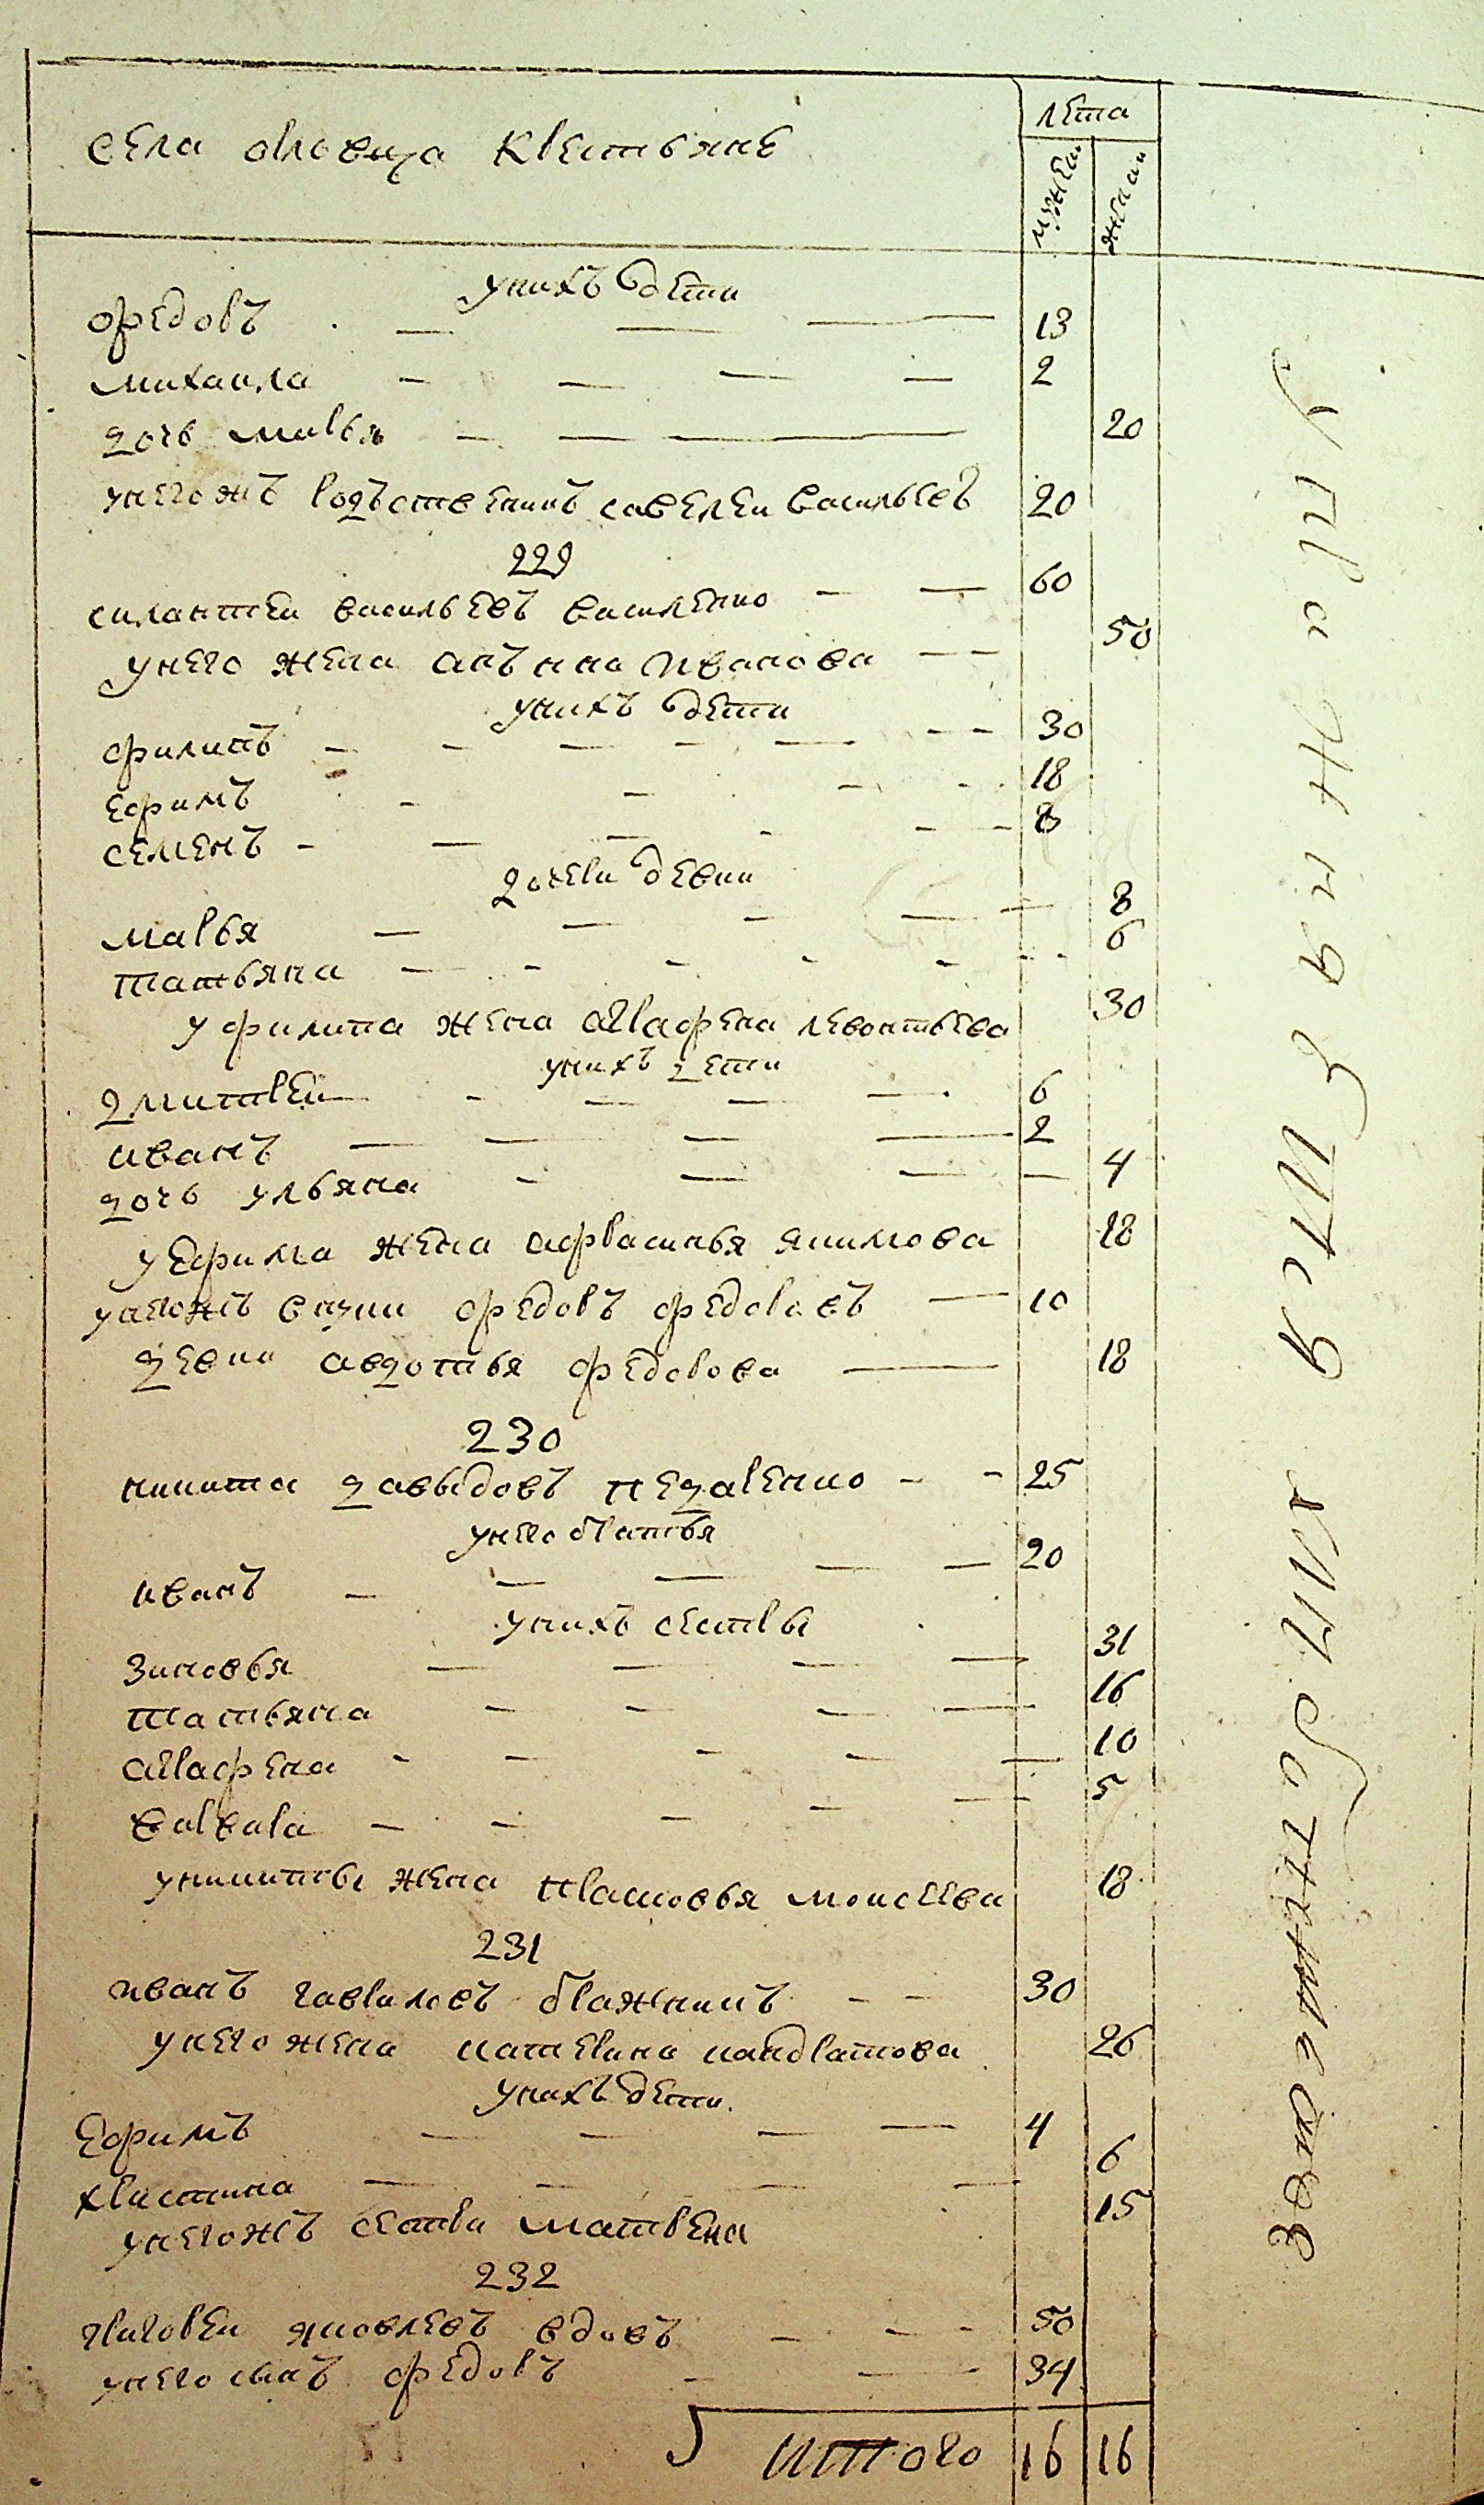 села олшвица крестьяне
лета
мужеи
женаи
у нихъ дети
федоръ 13
михаила 2
дочь марья 20
у негожъ родъственикъ савелеи васильевъ 20
229
силантеи васильевъ василенко 60
у него жена анъна иванова 50
у нихъ дети
филипъ 30
ефимъ 18
семенъ 8
дочери девки
марья 8
татьяна 6
у филипа жена аграфена левонтьева 30
у нихъ дети
дмитреи 6
иванъ 2
дочь ульяна 4
у ефима жена афрасинья якимова 18
у негожъ внуки федоръ федоровъ 10
девки авдотья федорова 18
230
никита давыдовъ педаренко 25
у него братья
иванъ 20
у нихъ сестры
зиновья 31
татьяна 16
аграфена 10
варвара 5
у никиты жена прасковья моисеева 18
231
иванъ гавриловъ бражникъ 30
у него жена катерина кондратова 26
у нихъ дети
ефимъ 4
христина 6
у негожъ сестра матрена 15
232
григореи яковлевъ вдовъ 50
у него сынъ федоръ 34
итого 16 16